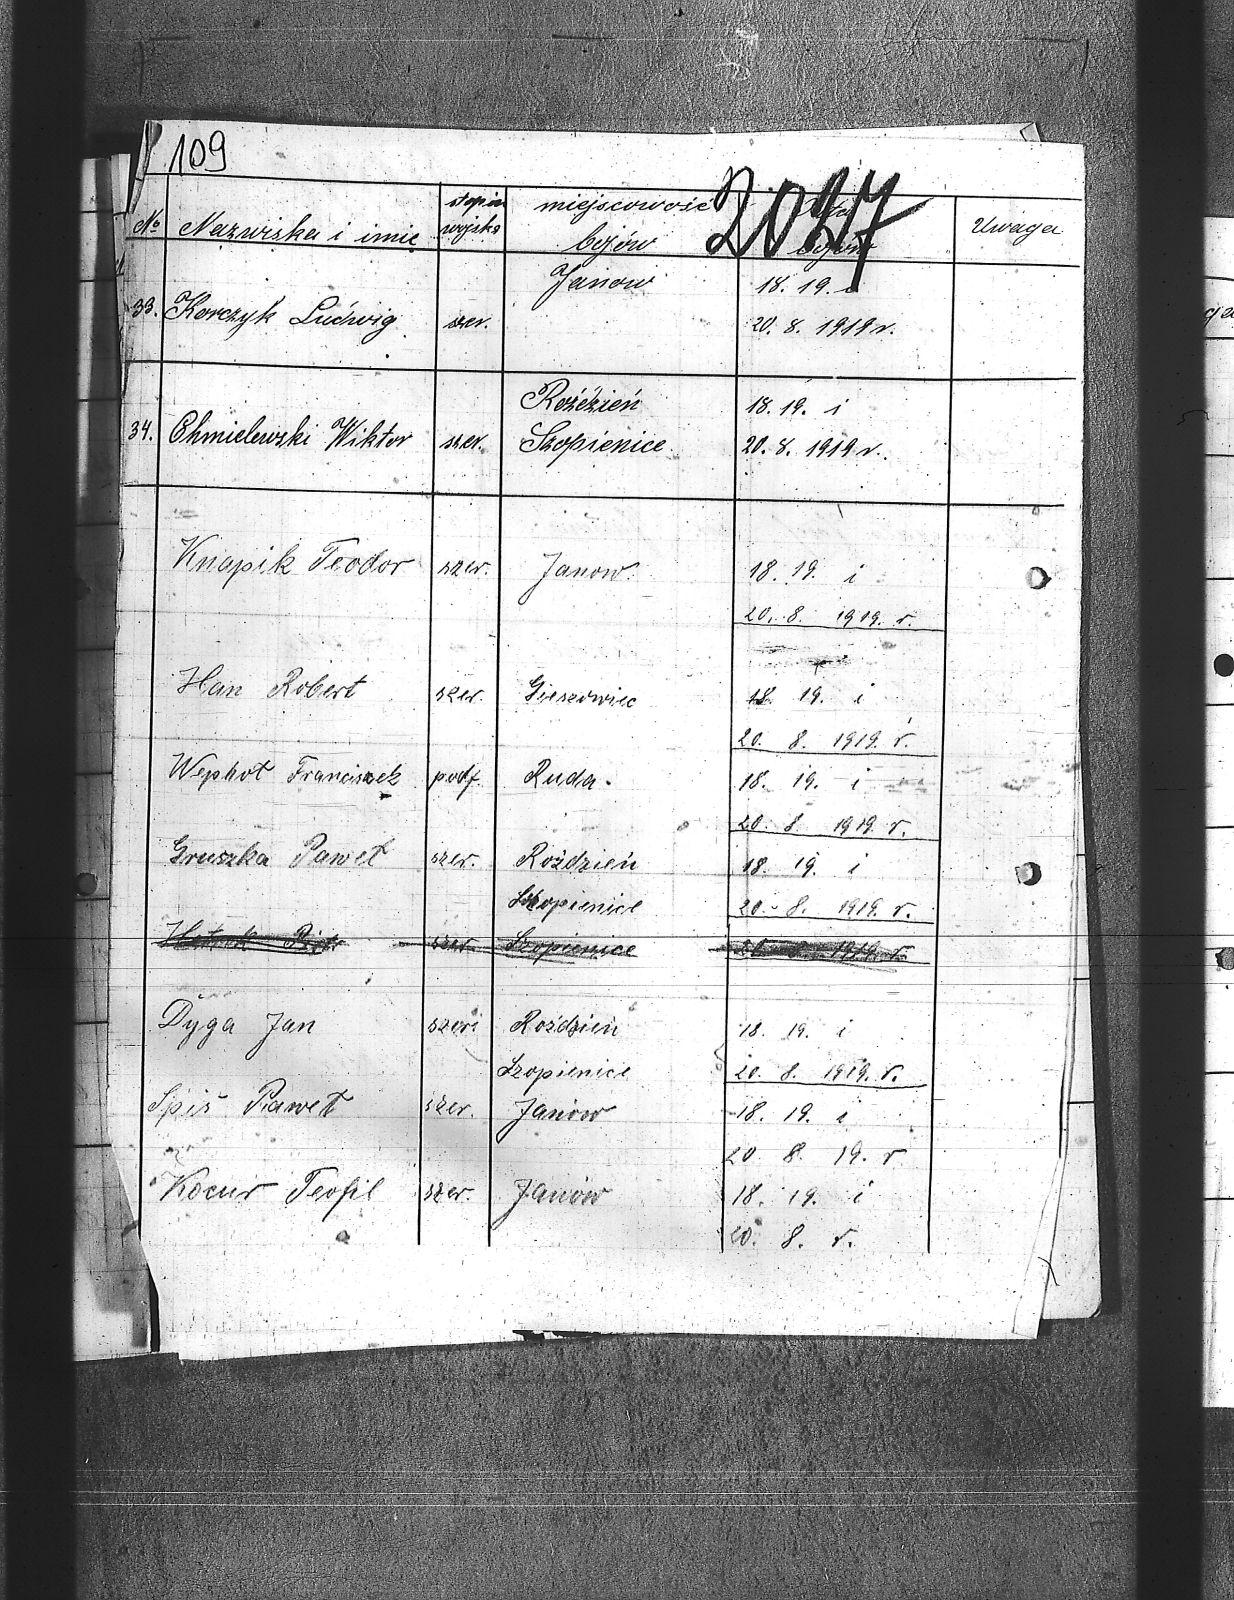 109
2027
stopień miejscowość
№ Nazwiska i imię wojsko bojów bojów Uwaga
Janow 18. 19. i
33. Korczyk Ludwig szer. 20. 8. 1919 r.
Roździeń 18. 19. i
34. Chmielewski Wiktor szer. Szopienice 20. 8. 1919 r.
Knapik Teodor szer. Janow 18. 19. i
20. 8. 1919. r.
Han Robert szer. Gieszowiec 18 19. i
20. 8. 1919. r.
Franciszek podf. Ruda. 18. 19. i
20. 8. 1919. r.
Gruszka Paweł szer. Roździeń 18. 19. i
Szopienice 20. 8. 1919. r.
szer Szopienice 20 8 1919. r.
Dyga Jan szer. Roździeń 18. 19. i
Szopienice 20. 8. 1919. r.
Spiś Paweł szer. Janów 18. 19. i
20 8. 19. r
Kocur Teofil szer. Janów 18. 19. i
20. 8. r.